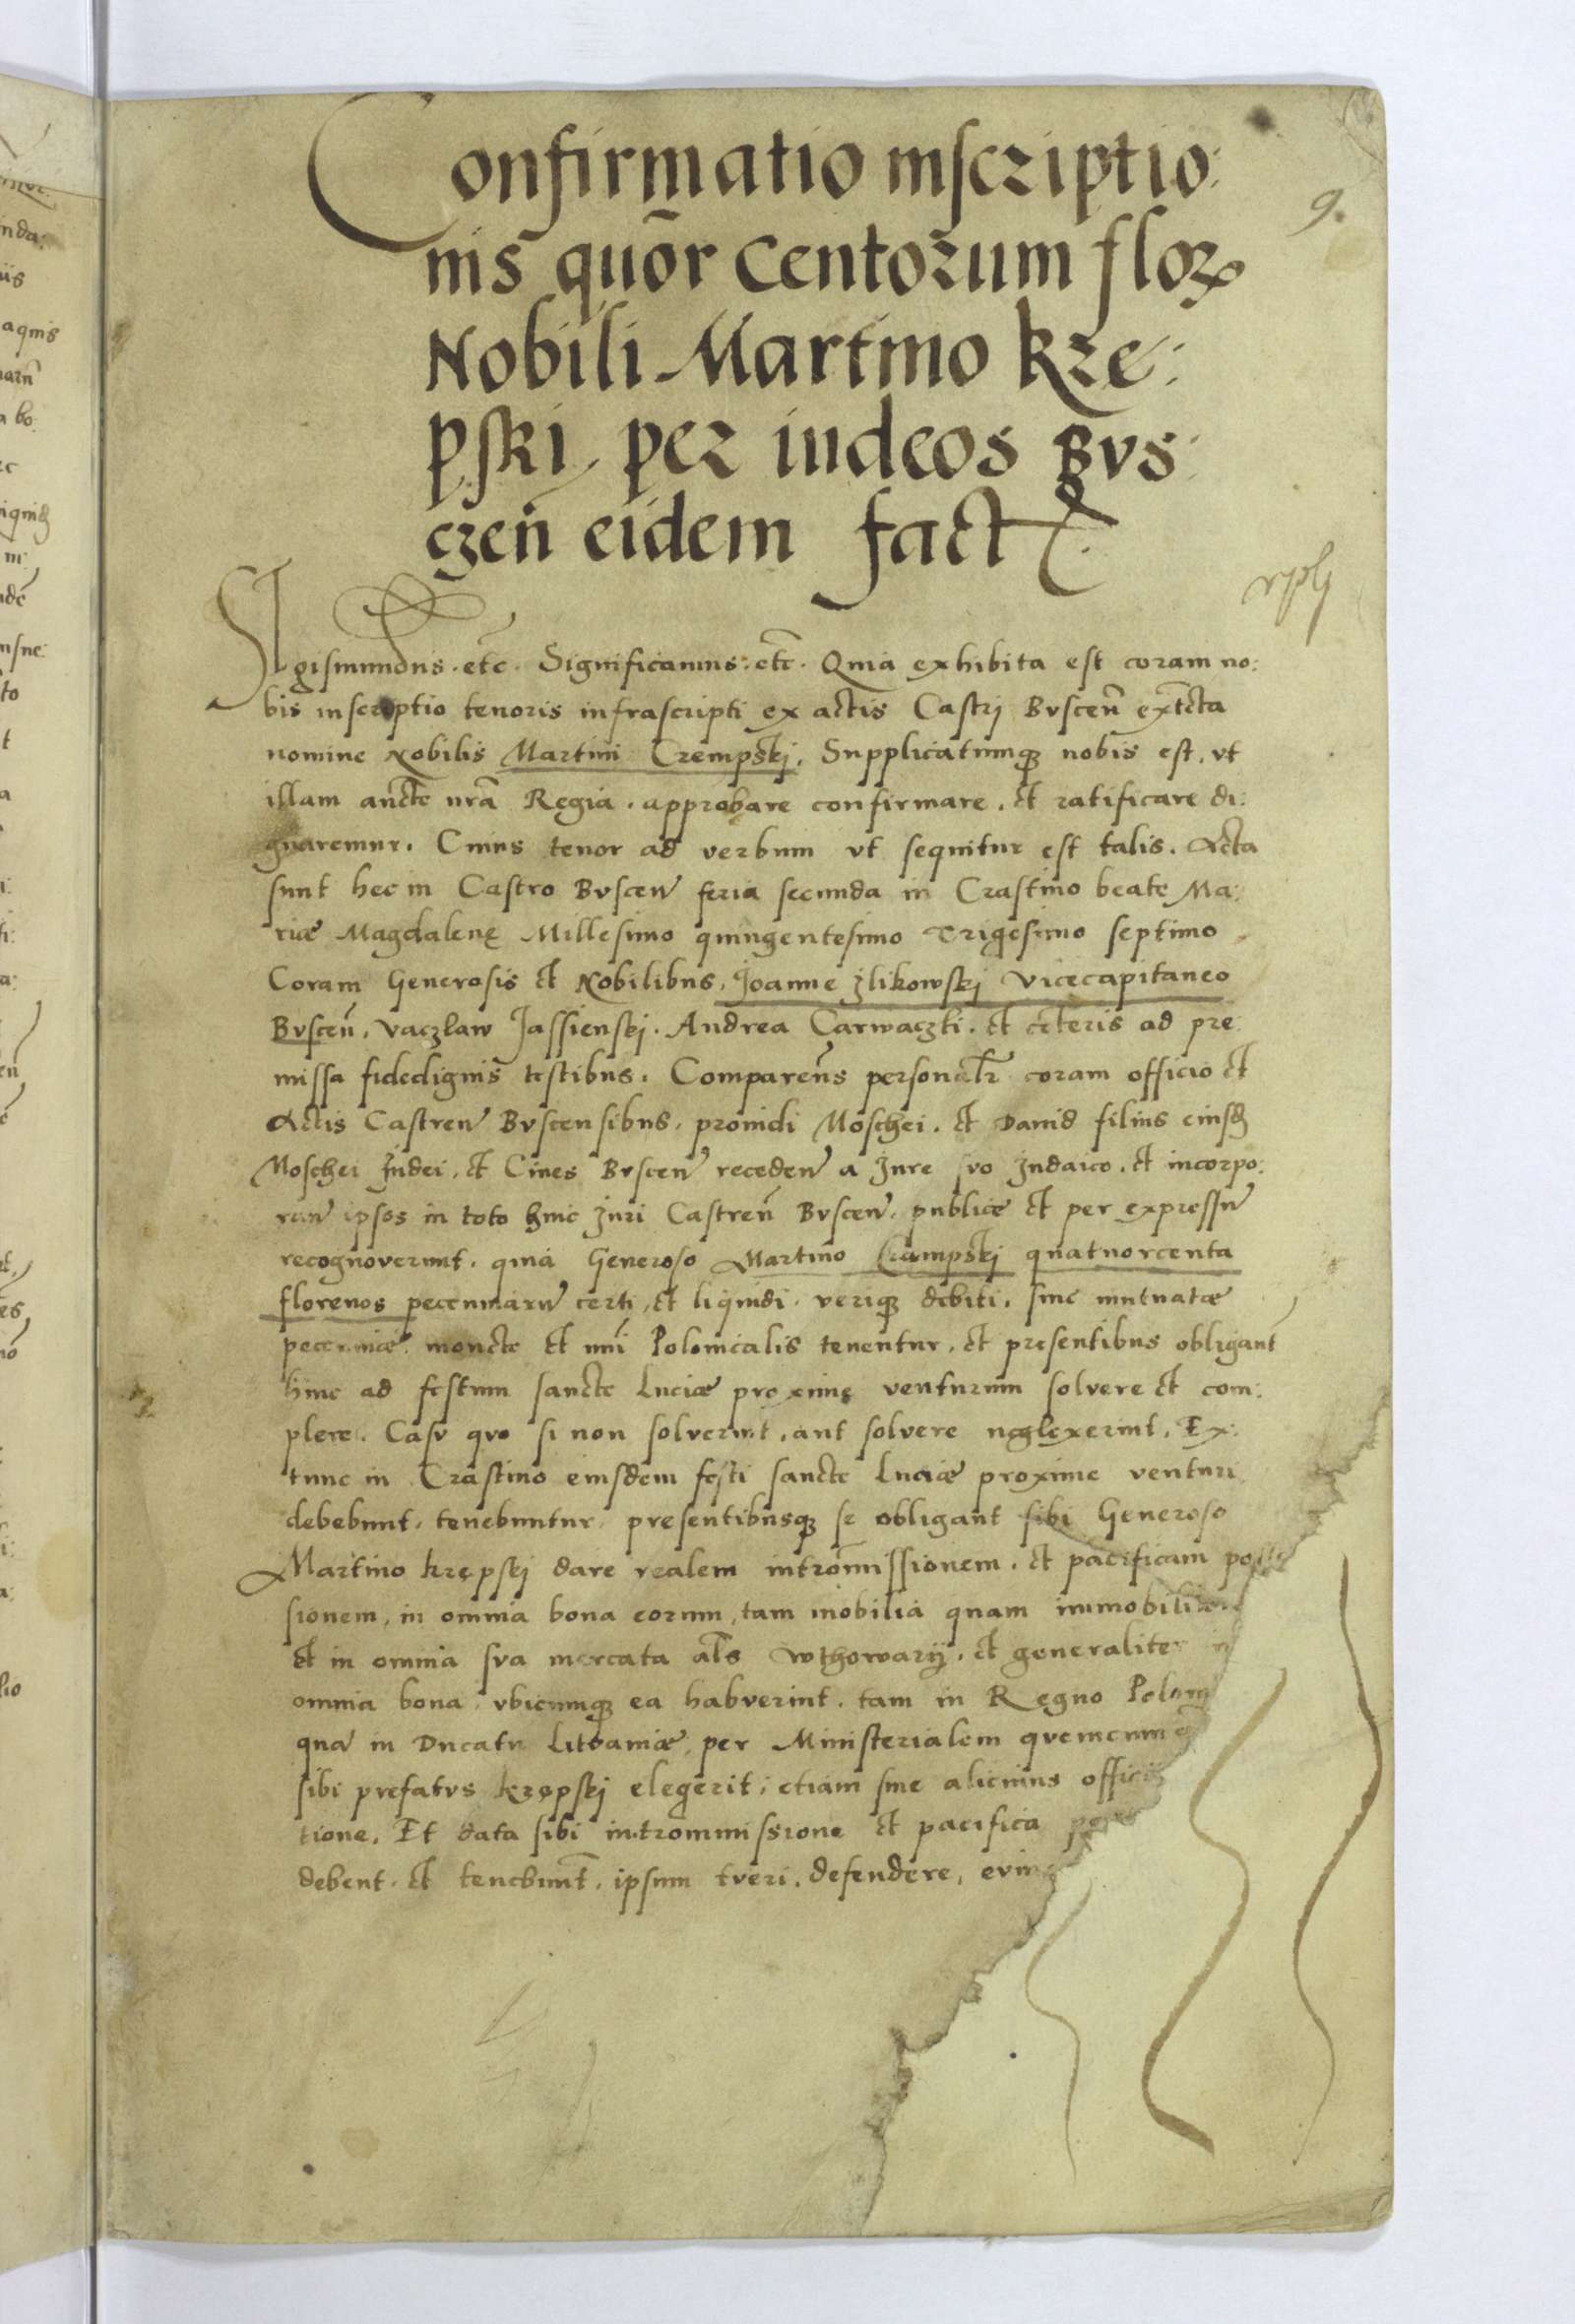 Confirmatio inscriptio:
nis quõr centorum florꝝ
Nobili Martino Krze:
pski, per iudeos Bvs:
czeñ eidem fact
9.
Sigismundus. etc̃. Significamus. etc̃. Quia exhibita est coram no:
bis inscriptio tenoris infrascripti ex actis Castrj Bvsceñ extcta
nomine Nobilis Martini Crzempskj. Supplicatumqꝫ nobis est, vt
illam aucte nrã Regia. approbare confirmare. et ratificare di:
gnaremur. Cuius tenor ad verbum vt sequitur est talis. Acta
sunt hec in Castro Bvsceñ feria secunda in Crastino beate Ma:
riæ Magdalenę Millesimo quingentesimo Trigesimo septimo
Coram Generosis et Nobilibus, Joanne Zlikowskj Vicecapitaneo
Bvsceñ. Vaczlaw Jassienskj. Andrea Carwaczki. et ceteris ad pre
missa fidedignis testibus. Comparens personalr̃ coram officio et
Actis Castreñ Bvscensibus. prouidi Moschei. et Dauid filius eiusd
Moschei Judei. et Ciues Bvsceñ recedeñ a Jure svo Judaico. et incorpo:
rañ ipsos in toto huic Juri Castreñ Bvsceñ. publicæ et per expressũ
recognoverunt. quia Generoso Martino Crzampskj quatuorcenta
florenos pecuniarũ certi, et liquidi. veriqꝫ debiti. siue mutuatæ
pecuniæ. moncte et nui Polonicalis tenentur. et presentibus obligant
hinc ad festum sancte Luciæ proximę venturum solvere et com:
plere. Casv qvo si non solverint, aut solvere neglexerint, Ex:
tunc in Crastino eiusdem festi sancte Luciæ proxime venturi
debebunt. tenebuntur. presentibusqꝫ se obligant sibi Generoso
Martino Krzępskj dare realem intromissionem. et pacificam posse
sionem, in omnia bona eorum, tam mobilia quam immobilia
et in omnia sva mercata als Wthowarij. et generaliter in
omnia bona. vbicumqꝫ ea habverint. tam in Regno Polon
quã in Ducatu Litvaniæ, per Ministerialem qvemcum
sibi prefatvs Krzępskj elegerit, etiam sine alicuius offici
tione. Et data sibi intromissione et pacifica
debent. et tenebunt̃. ipsum tveri. defendere,